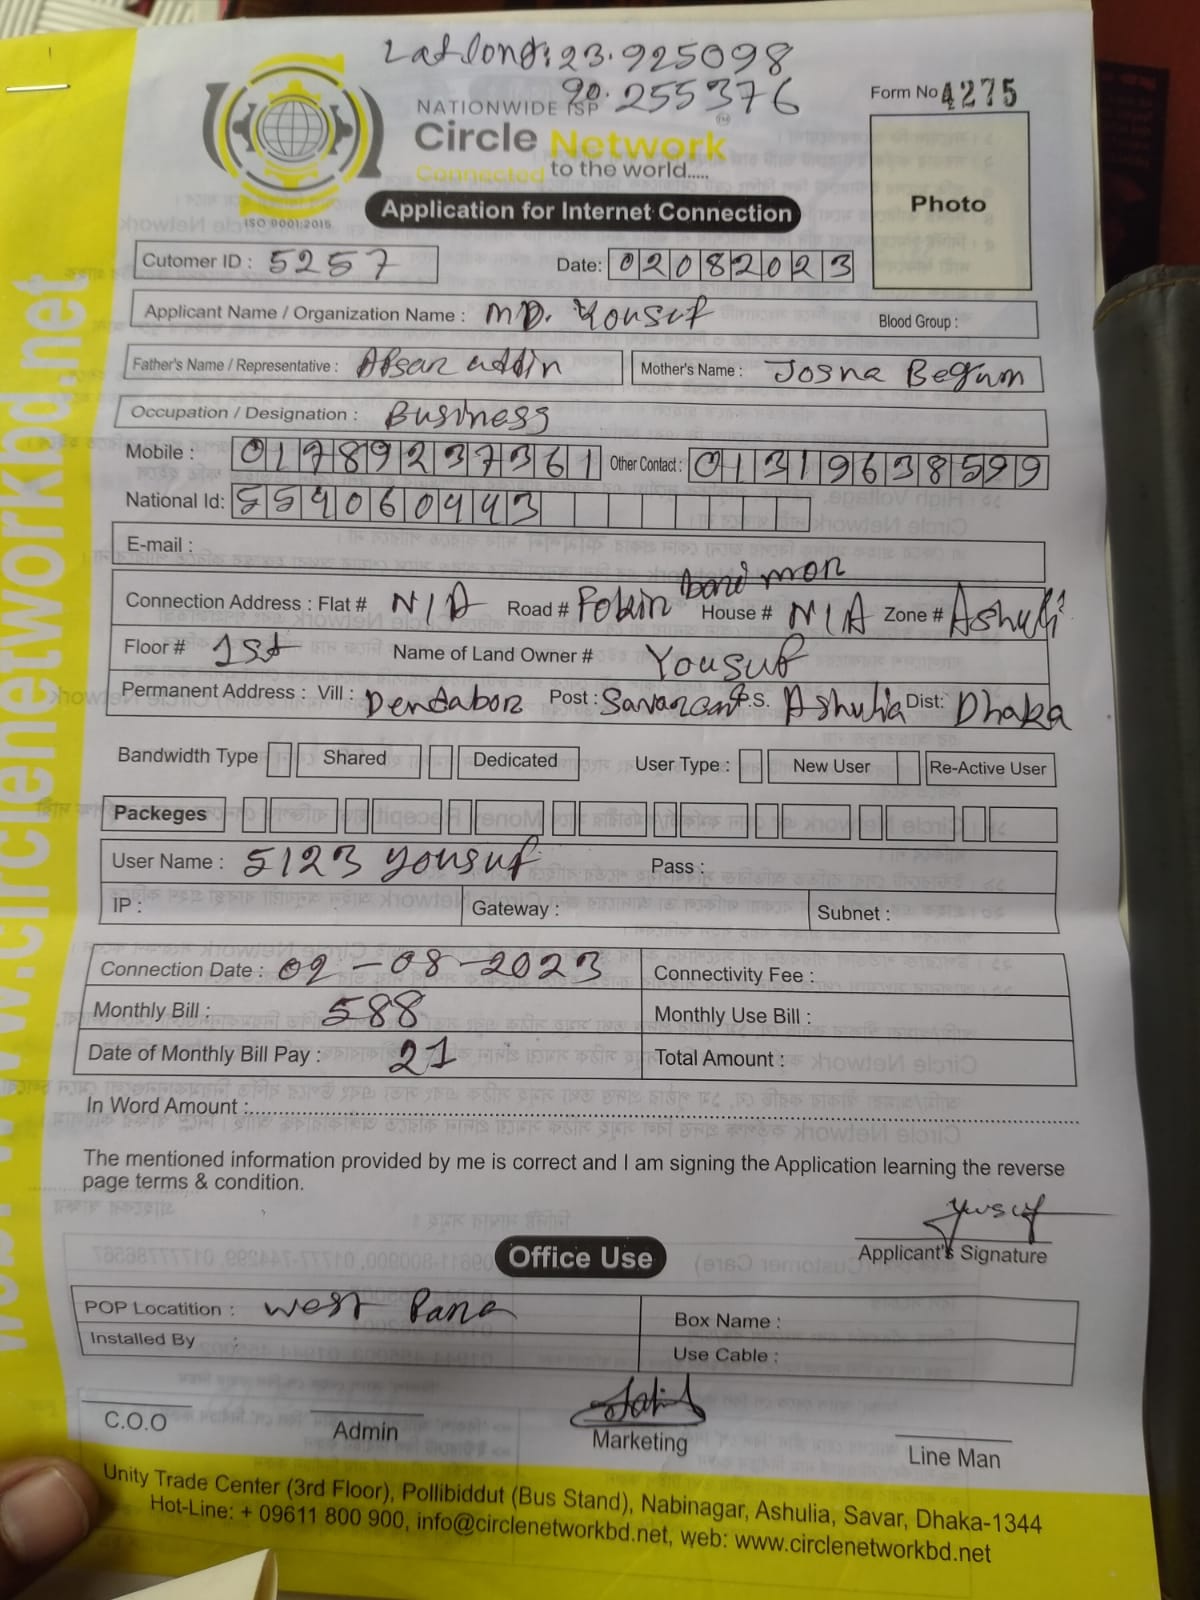 Latlong: 23.925098
90.255376
NATIONWIDE ISP
Form No 4275
Circle Network
Connected to the world.....
ISO 9001:2015
Application for Internet Connection
Photo
Cutomer ID : 5257 Date: 02082023
Applicant Name / Organization Name : MD. Yousuf Blood Group :
Father's Name / Representative : Afsar uddin Mother's Name : Josna Begum
Occupation / Designation : Business
Mobile : 01789237361 Other Contact : 01319638599
National Id: 5540
E-mail :
Connection Address : Flat # N/A Road # House # N/A Zone #
Floor # 1st Name of Land Owner # Yousuf
Permanent Address : Vill : Dendabor Post : P.S. Ashulia Dist: Dhaka
Bandwidth Type Shared Dedicated User Type : New User Re-Active User
Packeges
User Name : 5123 yousuf Pass :
IP : Gateway : Subnet :
Connection Date : 02-08-2023 Connectivity Fee :
Monthly Bill : 588 Monthly Use Bill :
Date of Monthly Bill Pay : 21 Total Amount :
In Word Amount :
The mentioned information provided by me is correct and I am signing the Application learning the reverse
page terms & condition.
Yusuf
Applicant's Signature
Office Use
POP Locatition : west Para Box Name :
Installed By : Use Cable :
C.O.O Admin Marketing Line Man
Unity Trade Center (3rd Floor), Pollibiddut (Bus Stand), Nabinagar, Ashulia, Savar, Dhaka-1344
Hot-Line: + 09611 800 900, info@circlenetworkbd.net, web: www.circlenetworkbd.net
www.circlenetworkbd.net